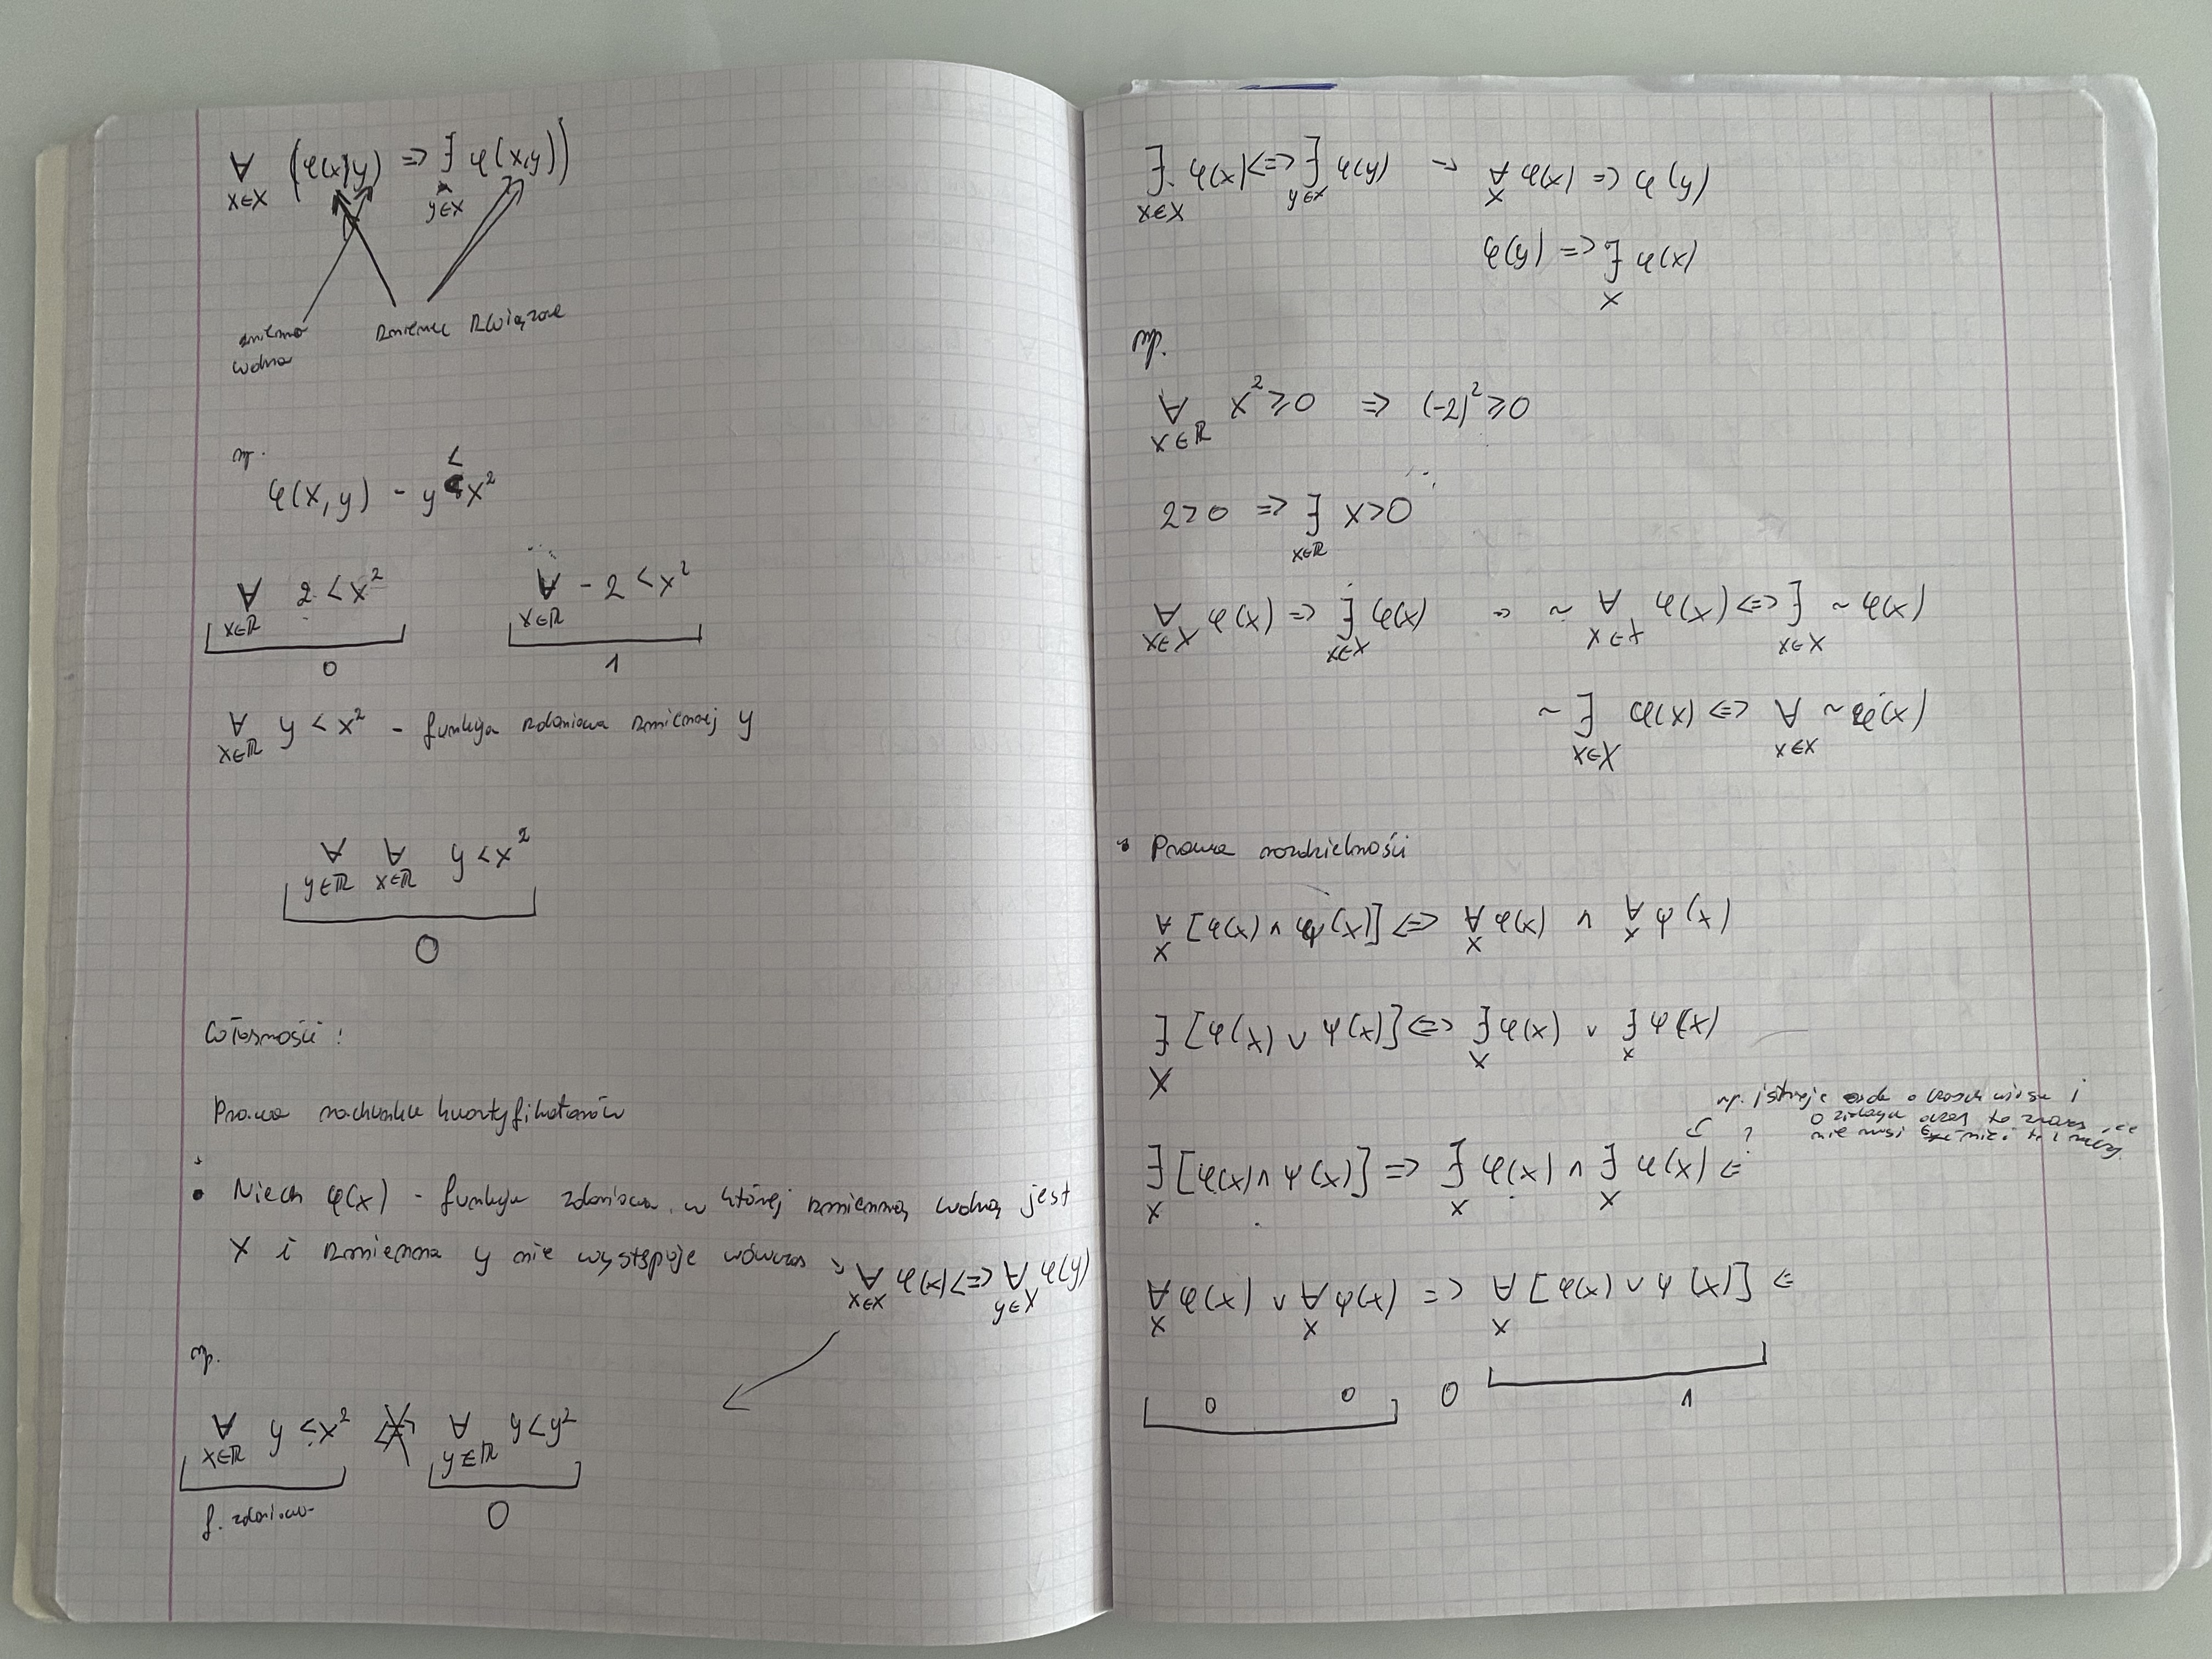 ∀ x∈X (φ(x,y) => ∃ y∈X φ(x,y))
zmienna wolna
zmienne związane
np.
φ(x,y) - y < x²
∀ x∈ℝ 2 < x²
0
∀ x∈ℝ -2 < x²
1
∀ x∈ℝ y < x² - funkcja zdaniowa zmiennej y
∀ y∈ℝ ∀ x∈ℝ y < x²
0
Własności:
Prawa rachunku kwantyfikatorów
• Niech φ(x) - funkcja zdaniowa, w której zmienną wolną jest
x i zmienna y nie występuje wówczas ∀ x∈X φ(x) <=> ∀ y∈X φ(y)
np.
∀ x∈ℝ y < x² <≠> ∀ y∈ℝ y < y²
f. zdaniowa
0
∃ x∈X φ(x) <=> ∃ y∈X φ(y) - ∀ x φ(x) => φ(y)
φ(y) => ∃ x φ(x)
np.
∀ x∈ℝ x² ≥ 0 => (-2)² ≥ 0
2 > 0 => ∃ x∈ℝ x > 0
∀ x∈X φ(x) => ∃ x∈X φ(x)
~ ∀ x∈X φ(x) <=> ∃ x∈X ~φ(x)
~ ∃ x∈X φ(x) <=> ∀ x∈X ~φ(x)
• Prawa rozdzielności
∀ x [φ(x) ∧ ψ(x)] <=> ∀ x φ(x) ∨ ∀ x ψ(x)
∃ x [φ(x) ∨ ψ(x)] <=> ∃ x φ(x) ∨ ∃ x ψ(x)
np. istnieje o włosach i
o to znaczy, że
nie musi
∃ x [φ(x) ∧ ψ(x)] => ∃ x φ(x) ∧ ∃ x φ(x) <= ?
∀ x φ(x) ∨ ∀ x ψ(x) => ∀ x [φ(x) ∨ ψ(x)] =>
0 0 0 1